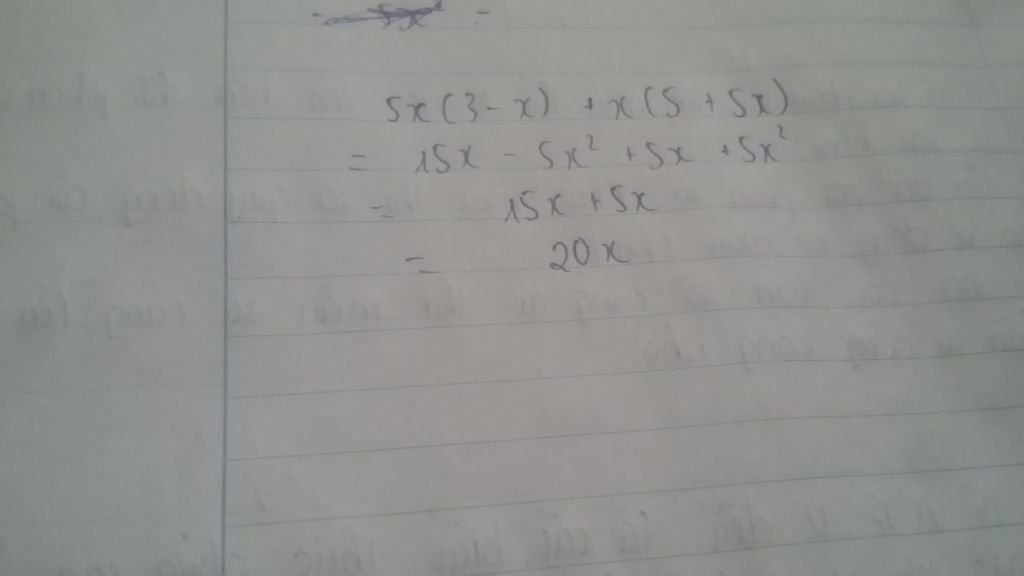 5x(3-x) + x(5 + 5x)
= 15x - 5x² + 5x + 5x²
= 15x + 5x
= 20x